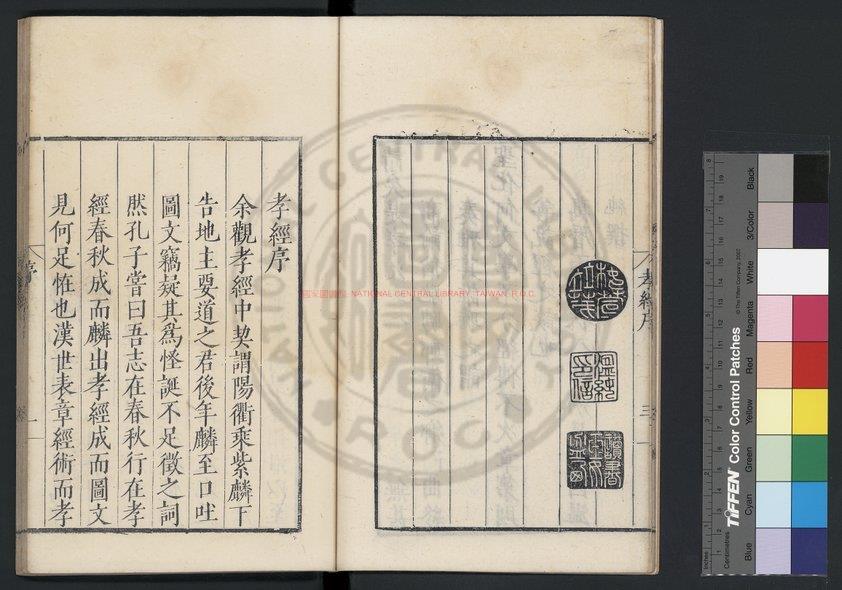 孝經序
余觀孝經中契謂陽衢乘紫麟下
告地主要道之君後年麟至口吐
圖文竊疑其爲怪誕不足徵之詞
然孔子嘗曰吾志在春秋行在孝
經春秋成而麟出孝經成而圖文
見何足恠也漢世表章經術而孝
序
一
孝經序
三
國家圖書館 NATIONAL CENTRAL LIBRARY, TAIWAN, R.O.C.
TIFFEN Color Control Patches
© The Tiffen Company, 2007
Inches
Centimetres
Blue
Cyan
Green
Yellow
Red
Magenta
White
3/Color
Black